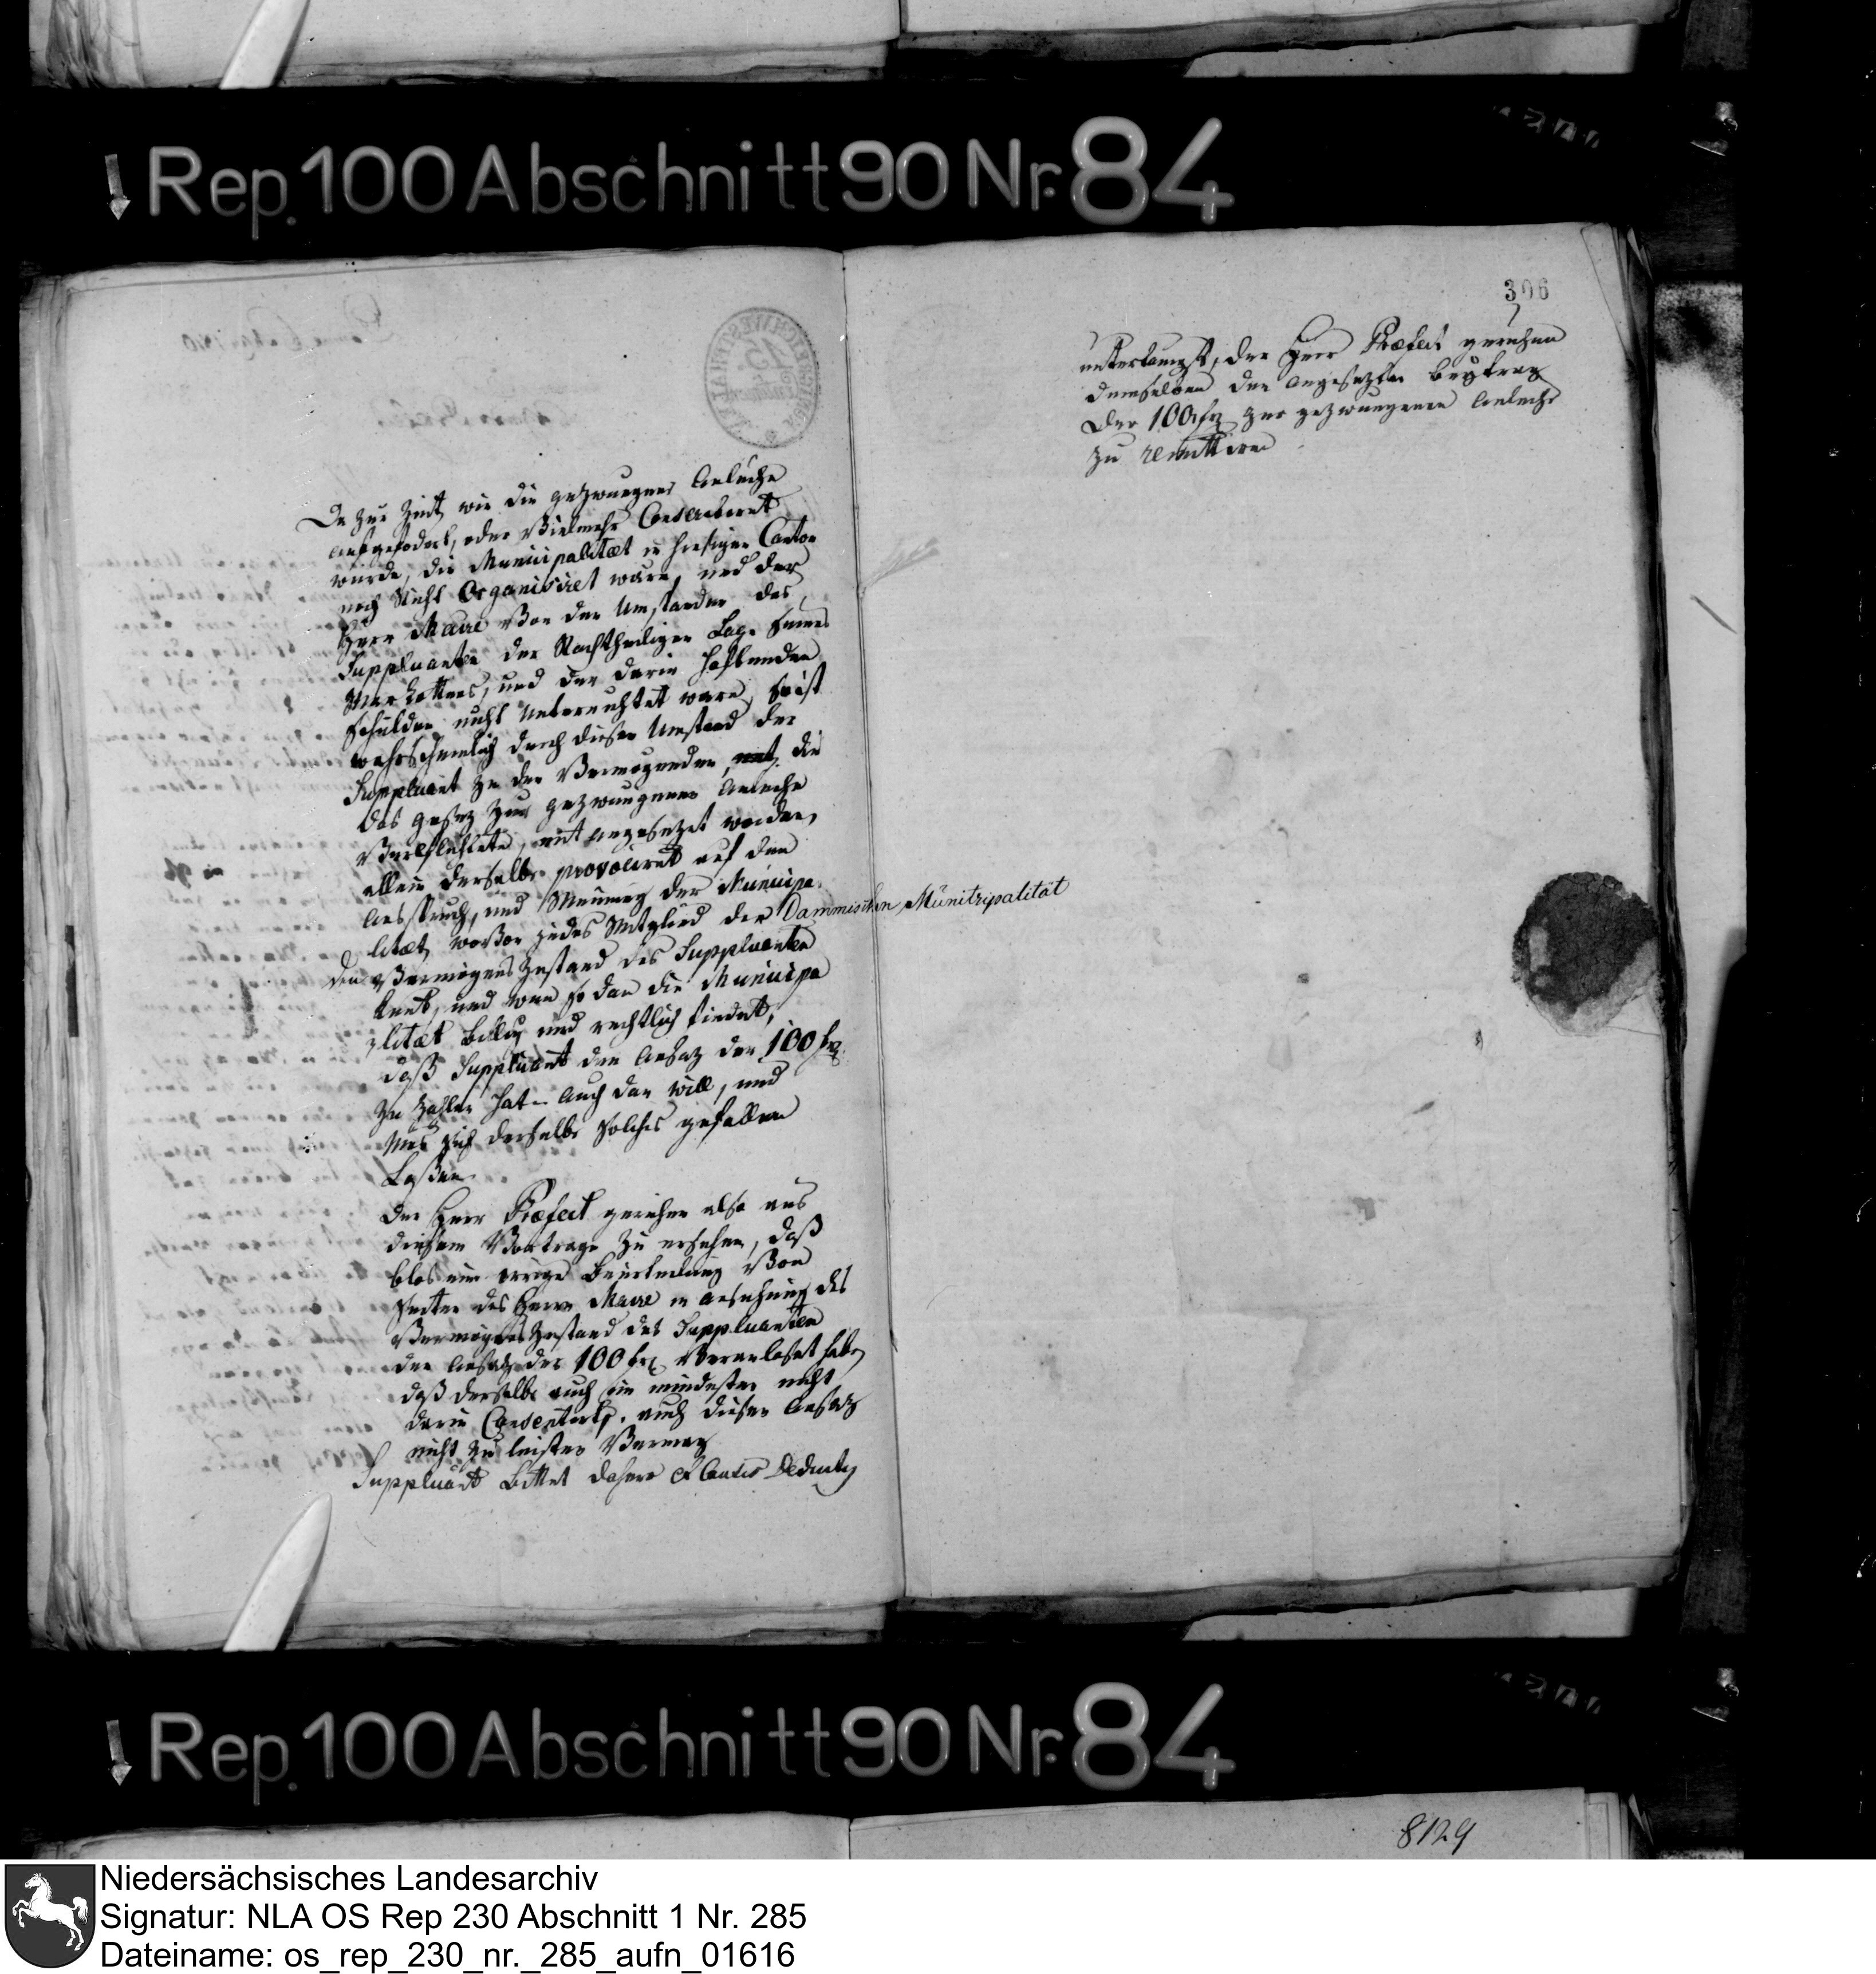 Rep. 100 Abschnitt 90 Nr. 84
Da zur Zeit, wie die gezwungene Anleihe
aufgefodert, oder vielmehr
wurde, die Municipalitæt in hiesigen Canton
noch nicht Organisiret ware, und der
Herr Maire von den Umstanden des
Supplicanten der Nachtheiligen Lage seines
und den darin haftenden
Schulden nicht unterrichtet ware, so ist
wahrscheinlich durch diesen Umstand der
Supplicant zu den Vermogenden, die
das Gesez zur gezwungenen Anleihe
Verpflichtete, mit angesezet worden,
allein derselbe provociret auf den
Ausspruch, und Meinung der Municipa
litæt, wovon jedes Mitglied der Dammischen Münitzipalität
den Vermögens Zustand des Supplicanten
kent, und wan so dan die Municipa
litæt billig und rechtlich findet,
daß Supplicant den Ansaz der 100 frz
zu zahlen hat. Auch dan will, und
mus sich derselbe solches gefallen
Laßen.
Der Herr Præfect geruhen also aus
diesem Vortrage zu ersehen, daß
blos eine irrige Beurtheilung von
Seiten des Herrn Maire in Ansehung des
Vermögens Zustand des Supplicanten
den Ansatz der 100 frz veranlaset habe,
daß derselbe auch im mindesten nicht
darin auch diesen Ansatz
nicht zu leisten Vermag
Supplicant Bittet dahero
306
unterthanigst, der Herr Præfect geruhen
demselben den angesezten Beytrag
der 100 frz zur gezwungenen Anleihe
zu remittiren
Rep. 100 Abschnitt 90 Nr. 84
8129
Niedersächsisches Landesarchiv
Signatur: NLA OS Rep 230 Abschnitt 1 Nr. 285
Dateiname: os_rep_230_nr._285_aufn_01616